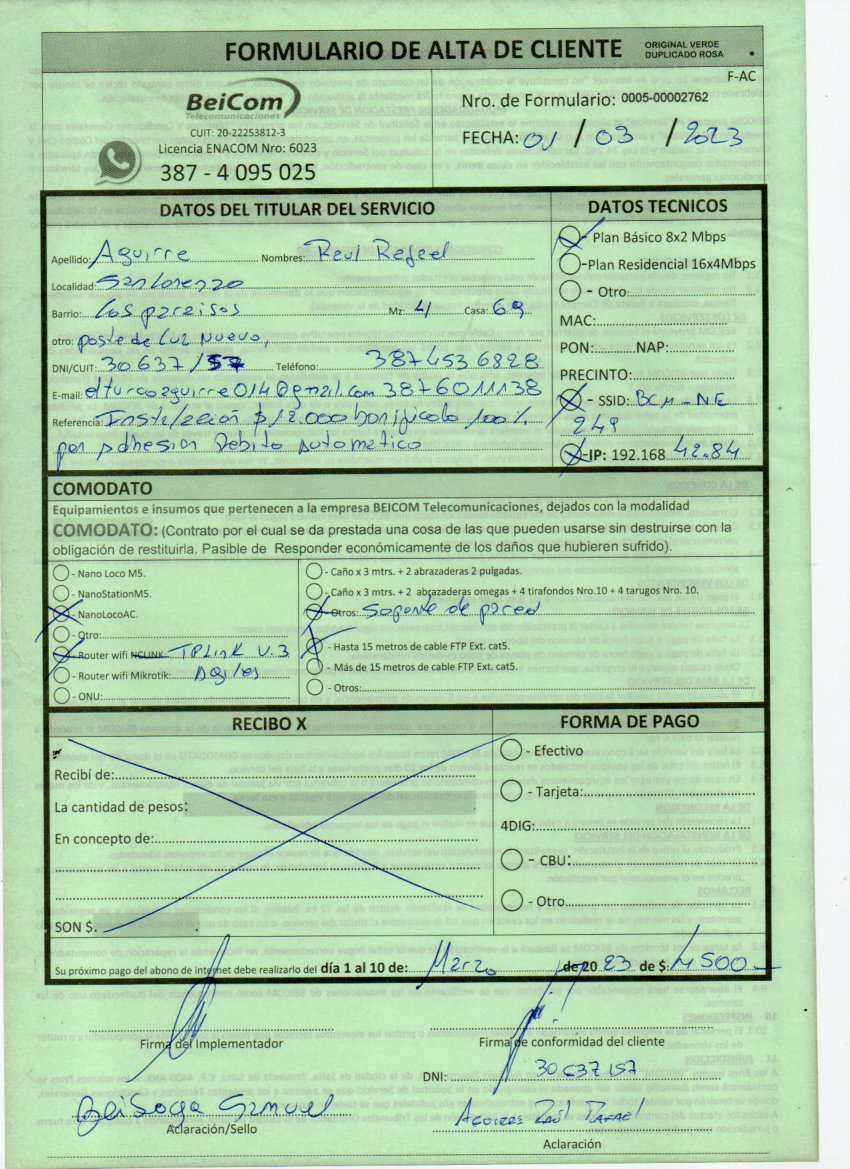 FORMULARIO DE ALTA DE CLIENTE ORIGINAL VERDE
DUPLICADO ROSA
F-AC
BeiCom
Telecomunicaciones
CUIT: 20-22253812-3
Licencia ENACOM Nro: 6023
387 - 4 095 025
Nro. de Formulario: 0005-00002762
FECHA: 01 / 03 / 2023
DATOS DEL TITULAR DEL SERVICIO
Apellido: Aguirre Nombres: Raul Rafael
Localidad: San Lorenzo
Barrio: Los paraisos Mz: 41 Casa: 69
otro: poste de Luz Nuevo,
DNI/CUIT: 30 637 157 Teléfono: 3874536828
E-mail: elturcoaguirre014@gmail.com 3876011138
Referencia: Instalación $12.000 bonificado 100%
por Adhesion Debito Automatico
DATOS TECNICOS
- Plan Básico 8x2 Mbps
-Plan Residencial 16x4Mbps
- Otro:
MAC:
PON: NAP:
PRECINTO:
- SSID: BCM-NE
249
-IP: 192.168 42.84
COMODATO
Equipamientos e insumos que pertenecen a la empresa BEICOM Telecomunicaciones, dejados con la modalidad
COMODATO: (Contrato por el cual se da prestada una cosa de las que pueden usarse sin destruirse con la
obligación de restituirla. Pasible de Responder económicamente de los daños que hubieren sufrido).
- Nano Loco M5.
- NanoStationM5.
- NanoLocoAC.
- Otro:
- Router wifi NCLINK: TPLink V.3
- Router wifi Mikrotik:
- ONU:
- Caño x 3 mtrs. + 2 abrazaderas 2 pulgadas.
- Caño x 3 mtrs. + 2 abrazaderas omegas + 4 tirafondos Nro.10 + 4 tarugos Nro. 10.
Otros: Soporte de pared
- Hasta 15 metros de cable FTP Ext. cat5.
- Más de 15 metros de cable FTP Ext. cat5.
- Otros:
RECIBO X
Recibí de:
La cantidad de pesos:
En concepto de:
SON $.
FORMA DE PAGO
- Efectivo
- Tarjeta:
4DIG:
- CBU:
- Otro
Su próximo pago del abono de internet debe realizarlo del día 1 al 10 de: Marzo de 20 23 de $: 1500
Firma del Implementador
Firma de conformidad del cliente
DNI: 30637157
BeiSoga Samuel
Aclaración/Sello
Aguirre Raúl Rafael
Aclaración